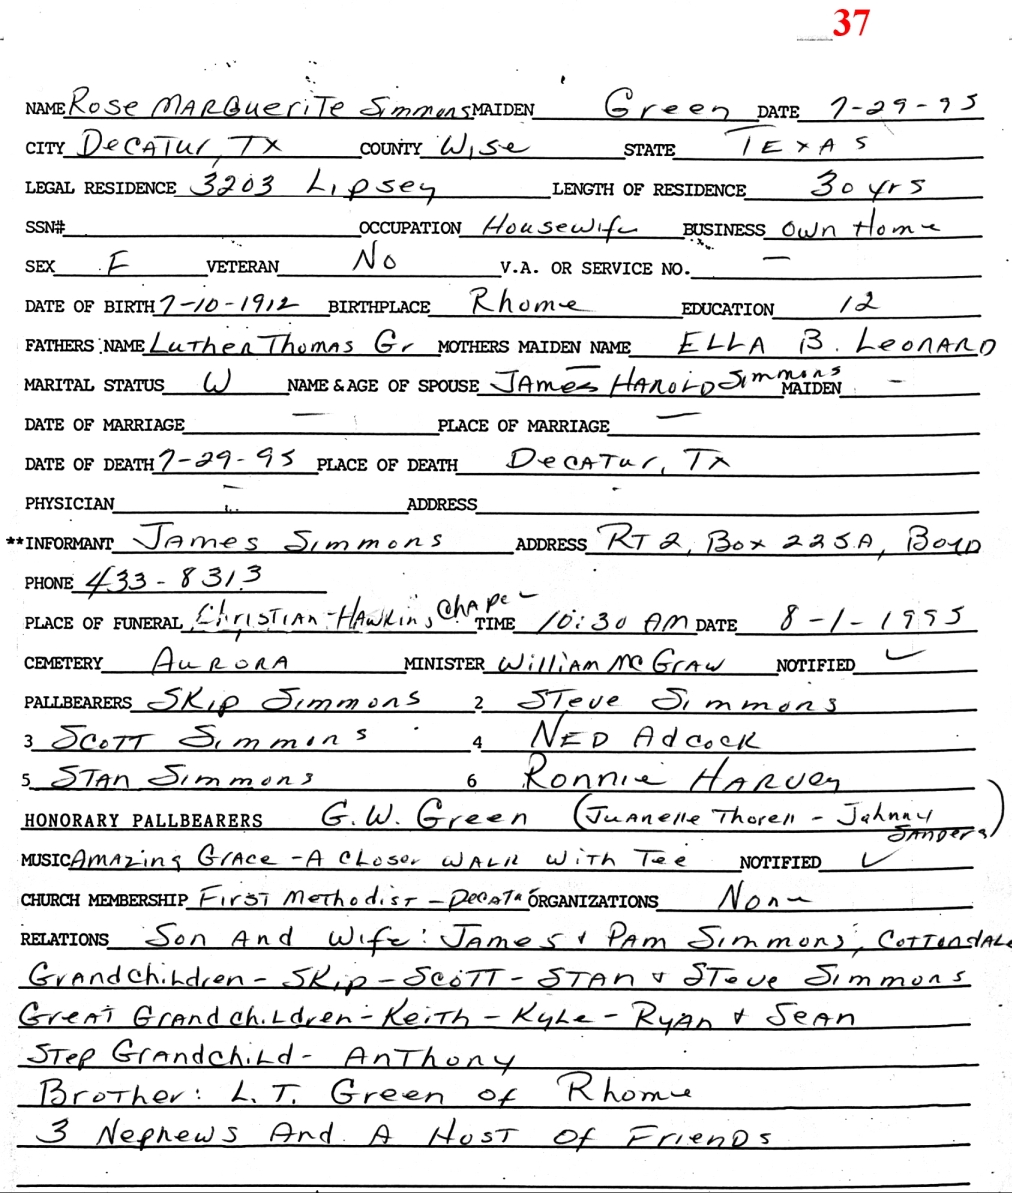 37
NAME Rose MARGuerite Simmons MAIDEN Green DATE 7-29-95
CITY Decatur, TX COUNTY Wise STATE TEXAS
LEGAL RESIDENCE 3203 Lipsey LENGTH OF RESIDENCE 30 yrs
SSN# OCCUPATION Housewife BUSINESS Own Home
SEX F VETERAN No V.A. OR SERVICE NO. —
DATE OF BIRTH 7-10-1912 BIRTHPLACE Rhome EDUCATION 12
FATHERS NAME Luther Thomas Gr MOTHERS MAIDEN NAME ELLA B. Leonard
MARITAL STATUS W NAME & AGE OF SPOUSE James Harold Simmons MAIDEN -
DATE OF MARRIAGE — PLACE OF MARRIAGE —
DATE OF DEATH 7-29-95 PLACE OF DEATH Decatur, TX
PHYSICIAN — ADDRESS
**INFORMANT James Simmons ADDRESS RT 2, Box 225A, Boyd
PHONE 433-8313
PLACE OF FUNERAL Christian-Hawkins Chapel TIME 10:30 AM DATE 8-1-1995
CEMETERY Aurora MINISTER William McGraw NOTIFIED ✓
PALLBEARERS Skip Simmons 2 Steve Simmons
3 Scott Simmons 4 Ned Adcock
5 Stan Simmons 6 Ronnie Harvey
HONORARY PALLBEARERS G.W. Green (Juanelle Thorell - Johnny Sanders)
MUSIC Amazing Grace - A Closer Walk With Tee NOTIFIED ✓
CHURCH MEMBERSHIP First Methodist - Decatur ORGANIZATIONS None
RELATIONS Son And Wife: James & Pam Simmons, Cottondale
Grandchildren - Skip - Scott - Stan & Steve Simmons
Great Grandchildren - Keith - Kyle - Ryan & Sean
Step Grandchild - Anthony
Brother: L.T. Green of Rhome
3 Nephews And A Host Of Friends